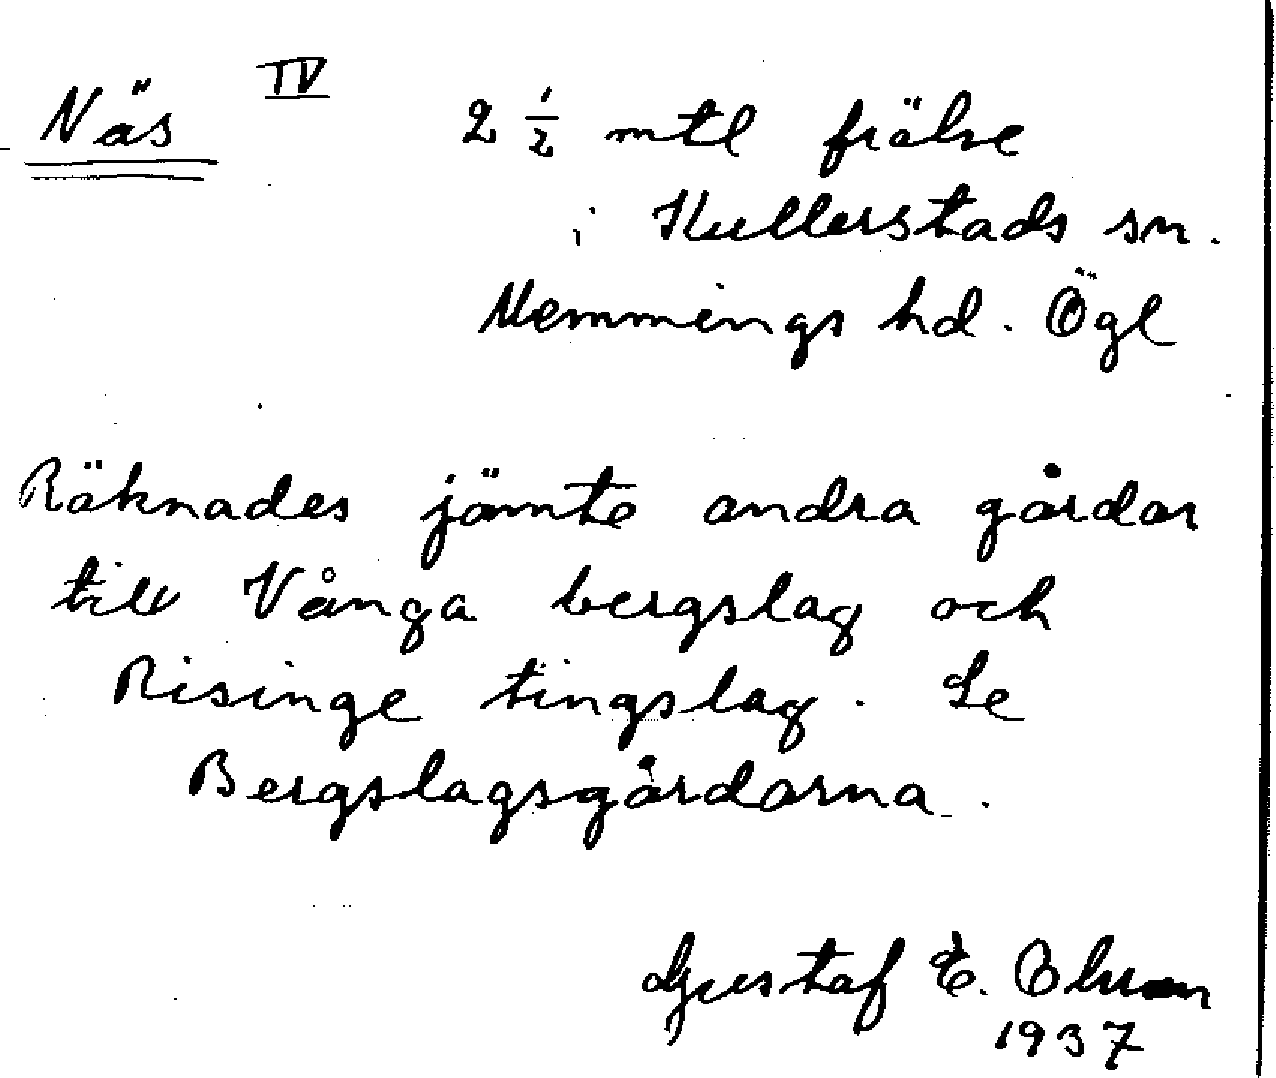 Näs IV 2 1/2 mtl frälse
i Kullerstads sn.
Memmings hd. Ögl
Räknades jämte andra gårdar
till Vånga bergslag och
Risinge tingslag. Se
Bergslagsgårdarna.
Gustaf E.
1937